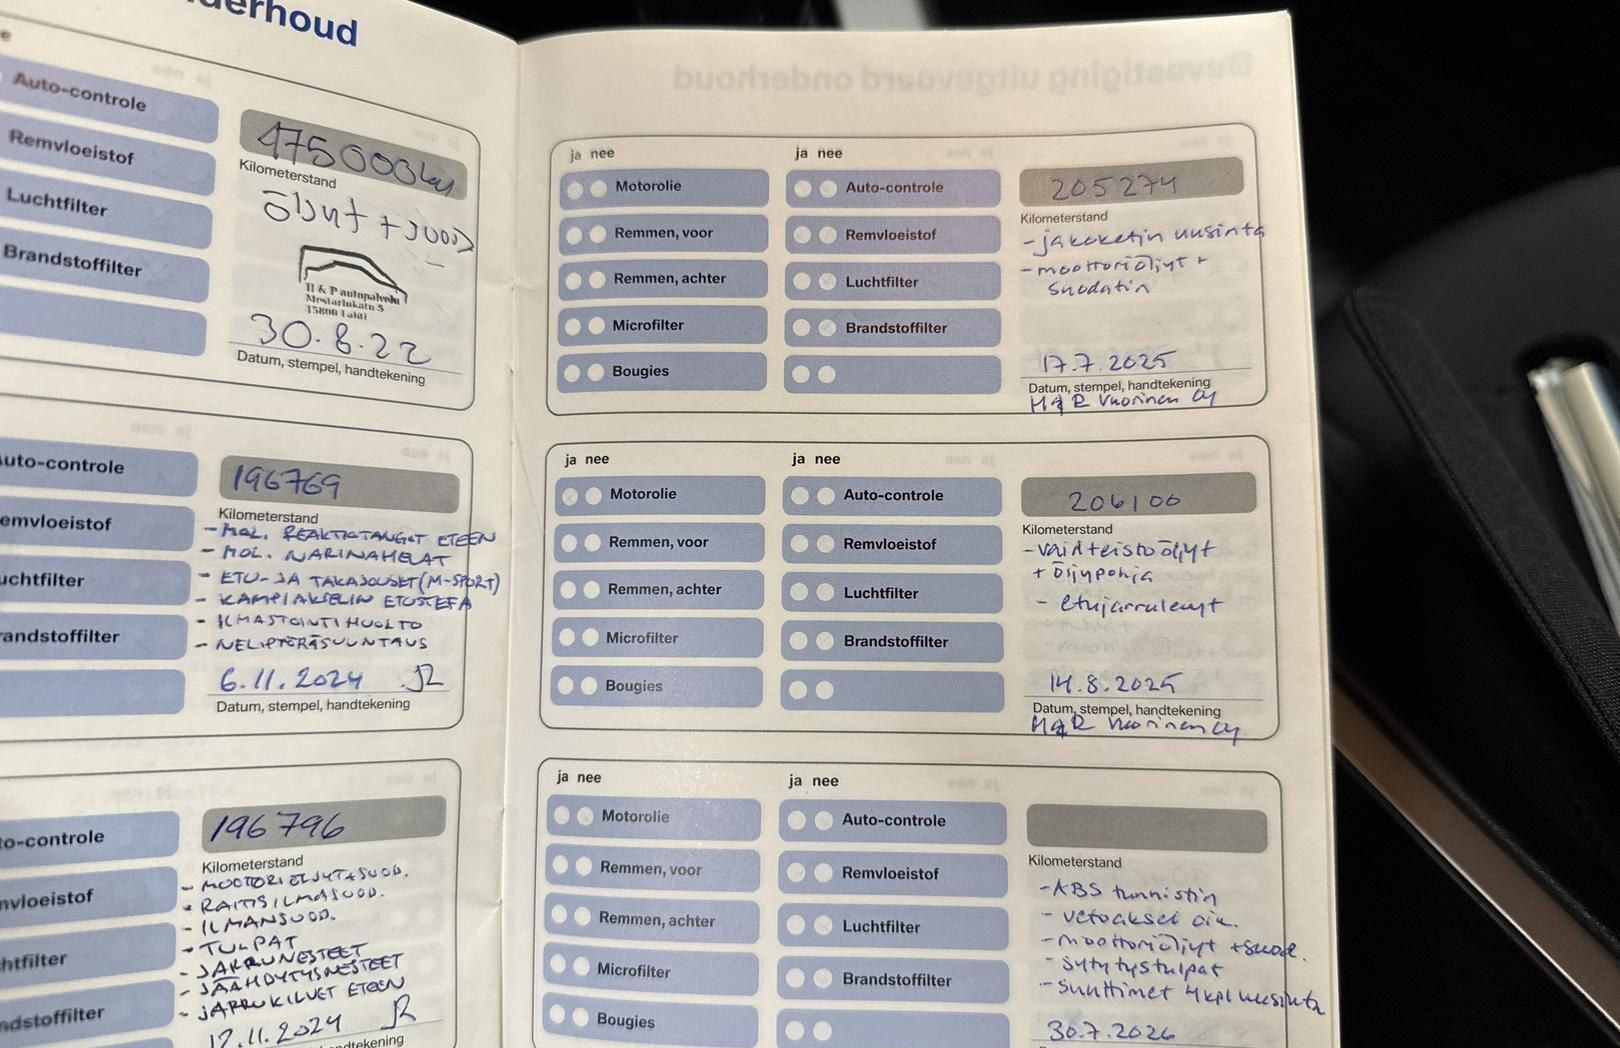 derhoud
Auto-controle
Remvloeistof
Luchtfilter
Brandstoffilter
175000km
Kilometerstand
öljyt + suod
H & P autopalvelu
Mestarinkatu 5
15800 Lahti
30.8.22
Datum, stempel, handtekening
uto-controle
emvloeistof
uchtfilter
randstoffilter
196769
Kilometerstand
- MOL. REAKTIOTANGOT ETEEN
- MOL. NARINAHELAT
- ETU- JA TAKAJOUSET (M-SPORT)
- KAMPIAKSELIN ETUSTEFA
- ILMASTOINTIHUOLTO
- NELIPYÖRÄSUUNTAUS
6.11.2024
Datum, stempel, handtekening
to-controle
mvloeistof
htfilter
ndstoffilter
196796
Kilometerstand
- MOOTTORIÖLJYT+SUOD.
- RAITISILMASUOD.
- ILMANSUOD.
- TULPAT
- JARRUNESTEET
- JÄÄHDYTYSNESTEET
- JARRUKILVET ETEEN
12.11.2024
dtekening
ja nee
ja nee
Motorolie
Auto-controle
Remmen, voor
Remvloeistof
Remmen, achter
Luchtfilter
Microfilter
Brandstoffilter
Bougies
205274
Kilometerstand
- jakoketjun uusinta
- moottoriöljyt +
suodatin
17.7.2025
Datum, stempel, handtekening
H&R Vuorinen Oy
ja nee
ja nee
Motorolie
Auto-controle
Remmen, voor
Remvloeistof
Remmen, achter
Luchtfilter
Microfilter
Brandstoffilter
Bougies
206100
Kilometerstand
- vaihteistoöljyt
+ öljypohja
- etujarrulevyt
14.8.2025
Datum, stempel, handtekening
H&R Vuorinen Oy
ja nee
ja nee
Motorolie
Auto-controle
Remmen, voor
Remvloeistof
Remmen, achter
Luchtfilter
Microfilter
Brandstoffilter
Bougies
Kilometerstand
- ABS tunnistin
- vetoakseli oik.
- moottoriöljyt + suod.
- sytytystulpat
- suuttimet 4kpl uusinta
30.7.2026